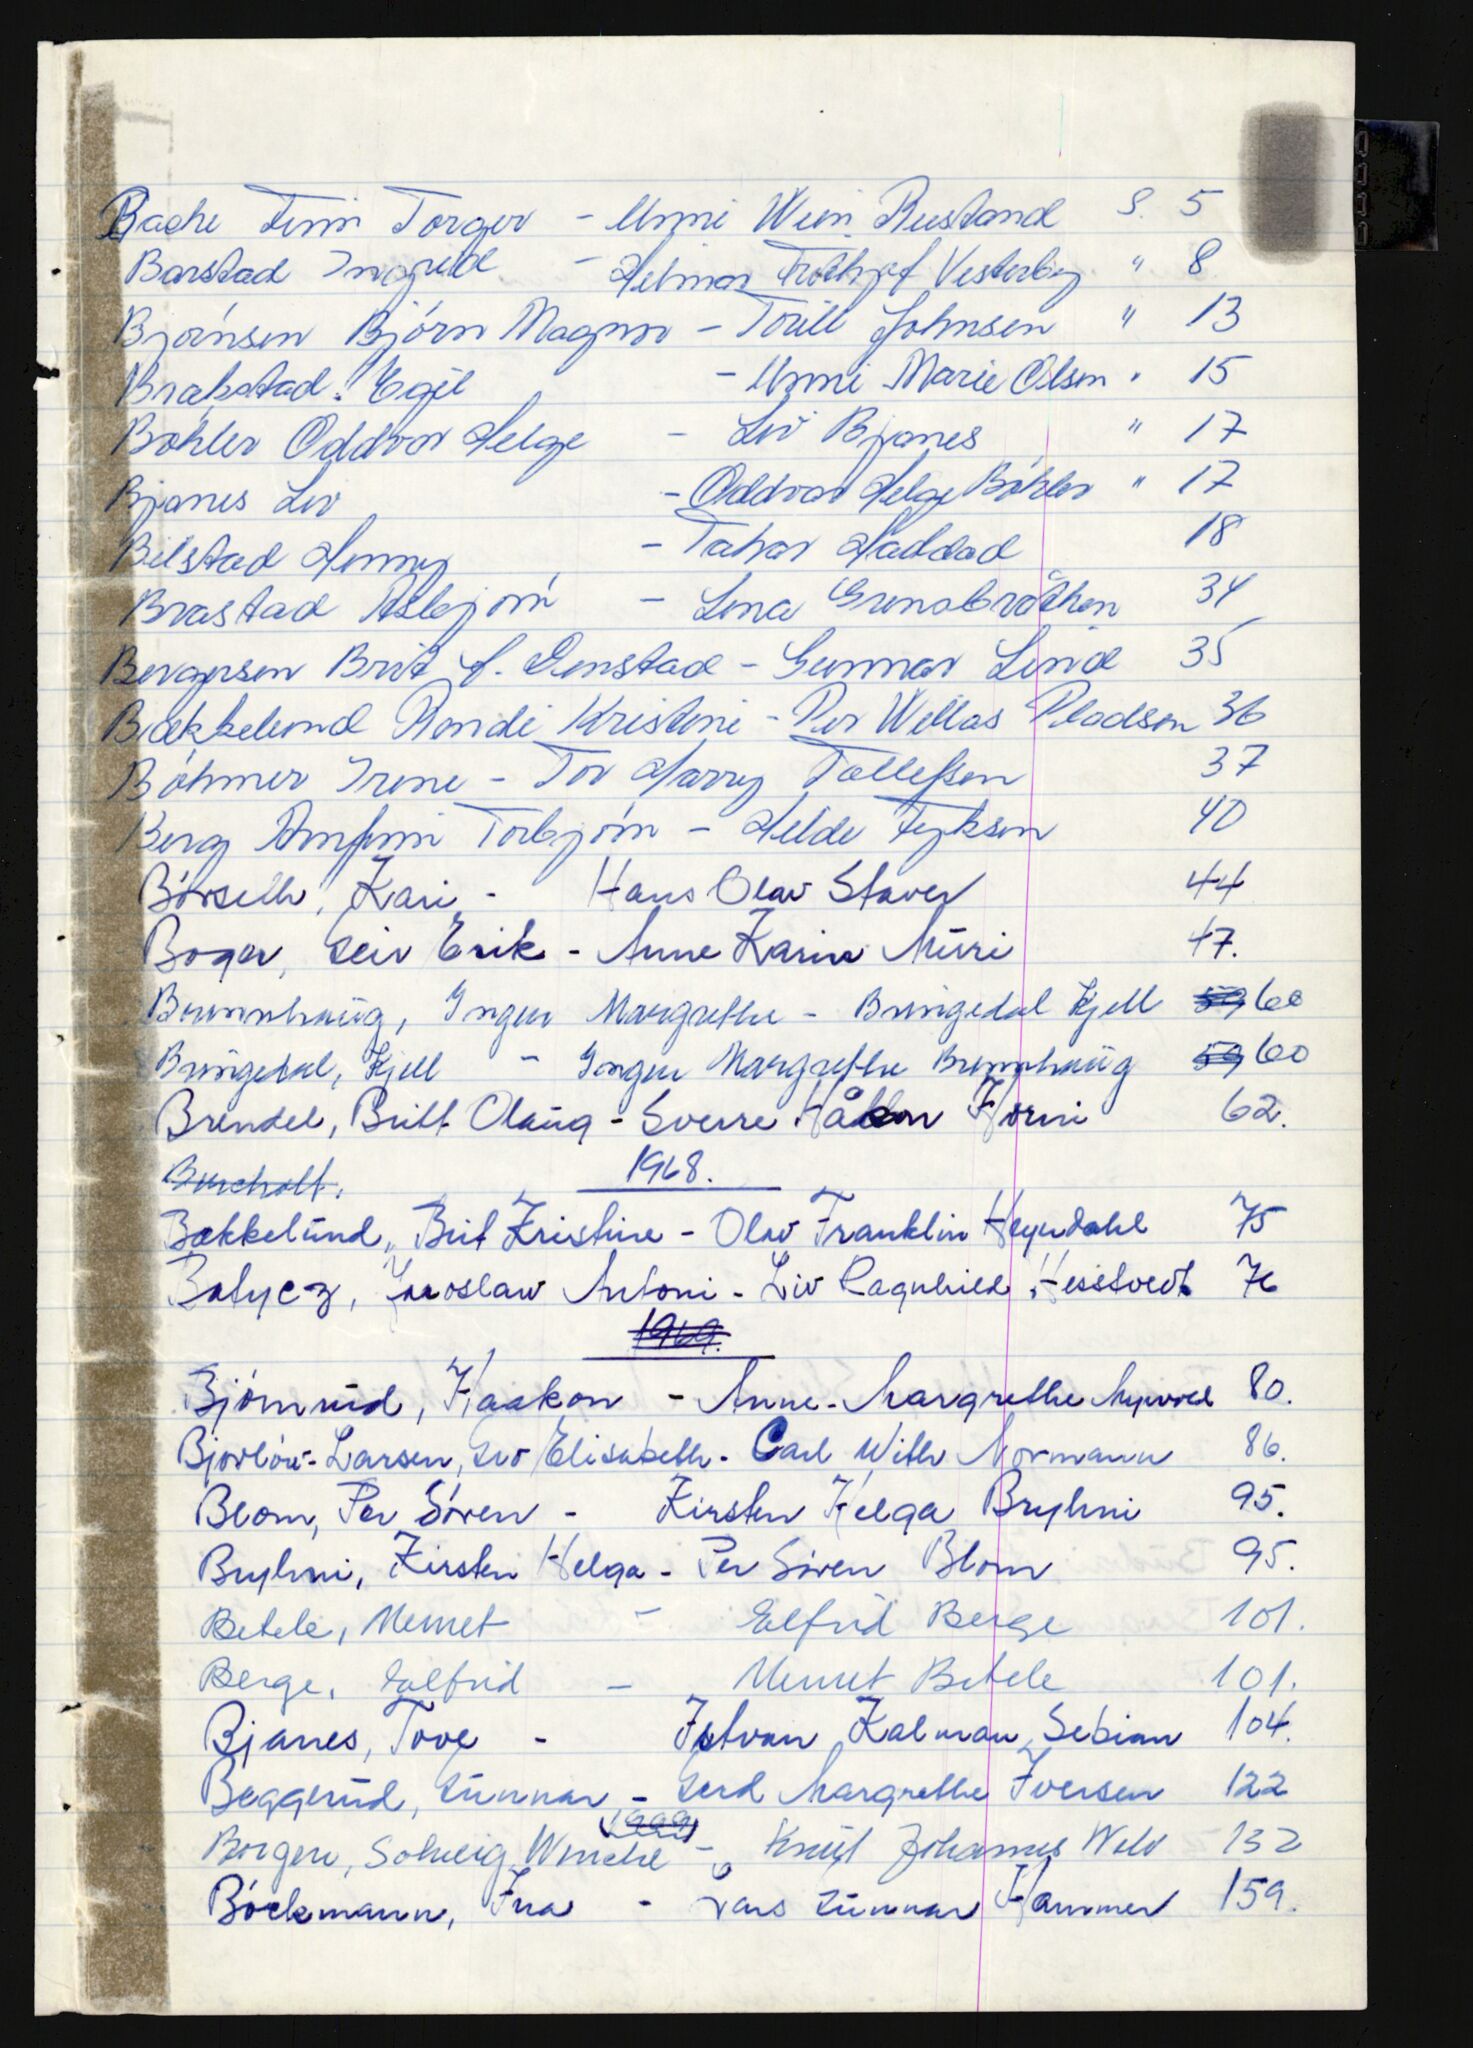 Bache Finn Torger - Unni Wein Rustand S. 5
Barstad Ingrid - Helmar Frithjof Vesterby " 8
Bjørnsen Bjørn Magnar - Torill Johnsen " 13
Brakstad Egil - Unni Marie Olsen " 15
Bøhler Oddvar Helge - Liv Bjanes " 17
Bjanes Liv - Oddvar Helge Bøhler " 17
Bilstad Henny - Tahar Haddad 18
Brastad Asbjørn - Lena Grenabråthen 34
Bergersen Brit H. Denstad - Gunnar Lind 35
Bækkelund Randi Kristine - Per Willas Pladsen 36
Bøhmer Irene - Tor Harry Tollefsen 37
Berg Arnfinn Torbjørn - Helde Fyksen 40
Børseth, Kari - Hans Olav Staver 44
Boger, Leiv Erik - Anne Karin Müri 47.
Brennhaug, Inger Margrethe - Bringedal Kjell 59 60
Bringedal, Kjell - Inger Margrethe Brennhaug 59 60
Brendel, Britt Olaug - Sverre Håkon Horni 62.
Burcholt. 1968.
Bækkelund, Brit Kristine - Olav Franklin Heyerdahl 75
Batycz, Jaroslaw Antoni - Liv Ragnhild Hesstvedt 76
1969.
Bjørnrud, Haakon - Anne-Margrethe Myrvold 80.
Bjorløw-Larsen, Liv Elisabeth - Carl With Normann 86.
Blom, Per Søren - Kirsten Helga Bryhni 95.
Bryhni, Kirsten Helga - Per Søren Blom 95.
Betele, Memet - Ealfrid Berge 101.
Berge, Ealfrid - Memet Betele 101.
Bjanes, Tove - Istvan Kalman Sebian 104.
Beggerud, Gunnar - Gerd Margrethe Iversen 122
Borgen, Solveig Wenche - Knut Johannes Wold 132
Böckmann, Ina - Lars Gunnar Hammer 159.